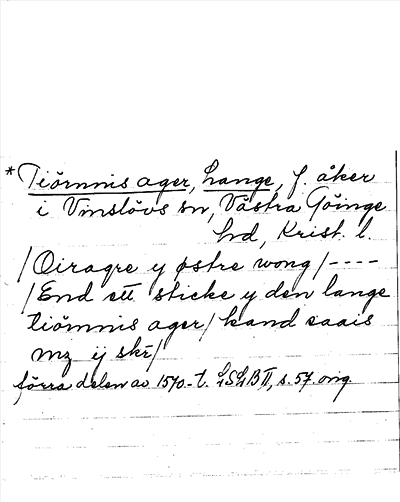 *Tiörnnis ager, hange, f. åker
i Vinslövs sn, Västra Göinge
hd, Krist. l.
/Oiragre y østre wong/----
/End ett sticke y den lange
tiömnis ager/ kand saais
mz ij skr/
förra delen av 1570-t. LSLB II, s. 57 orig.